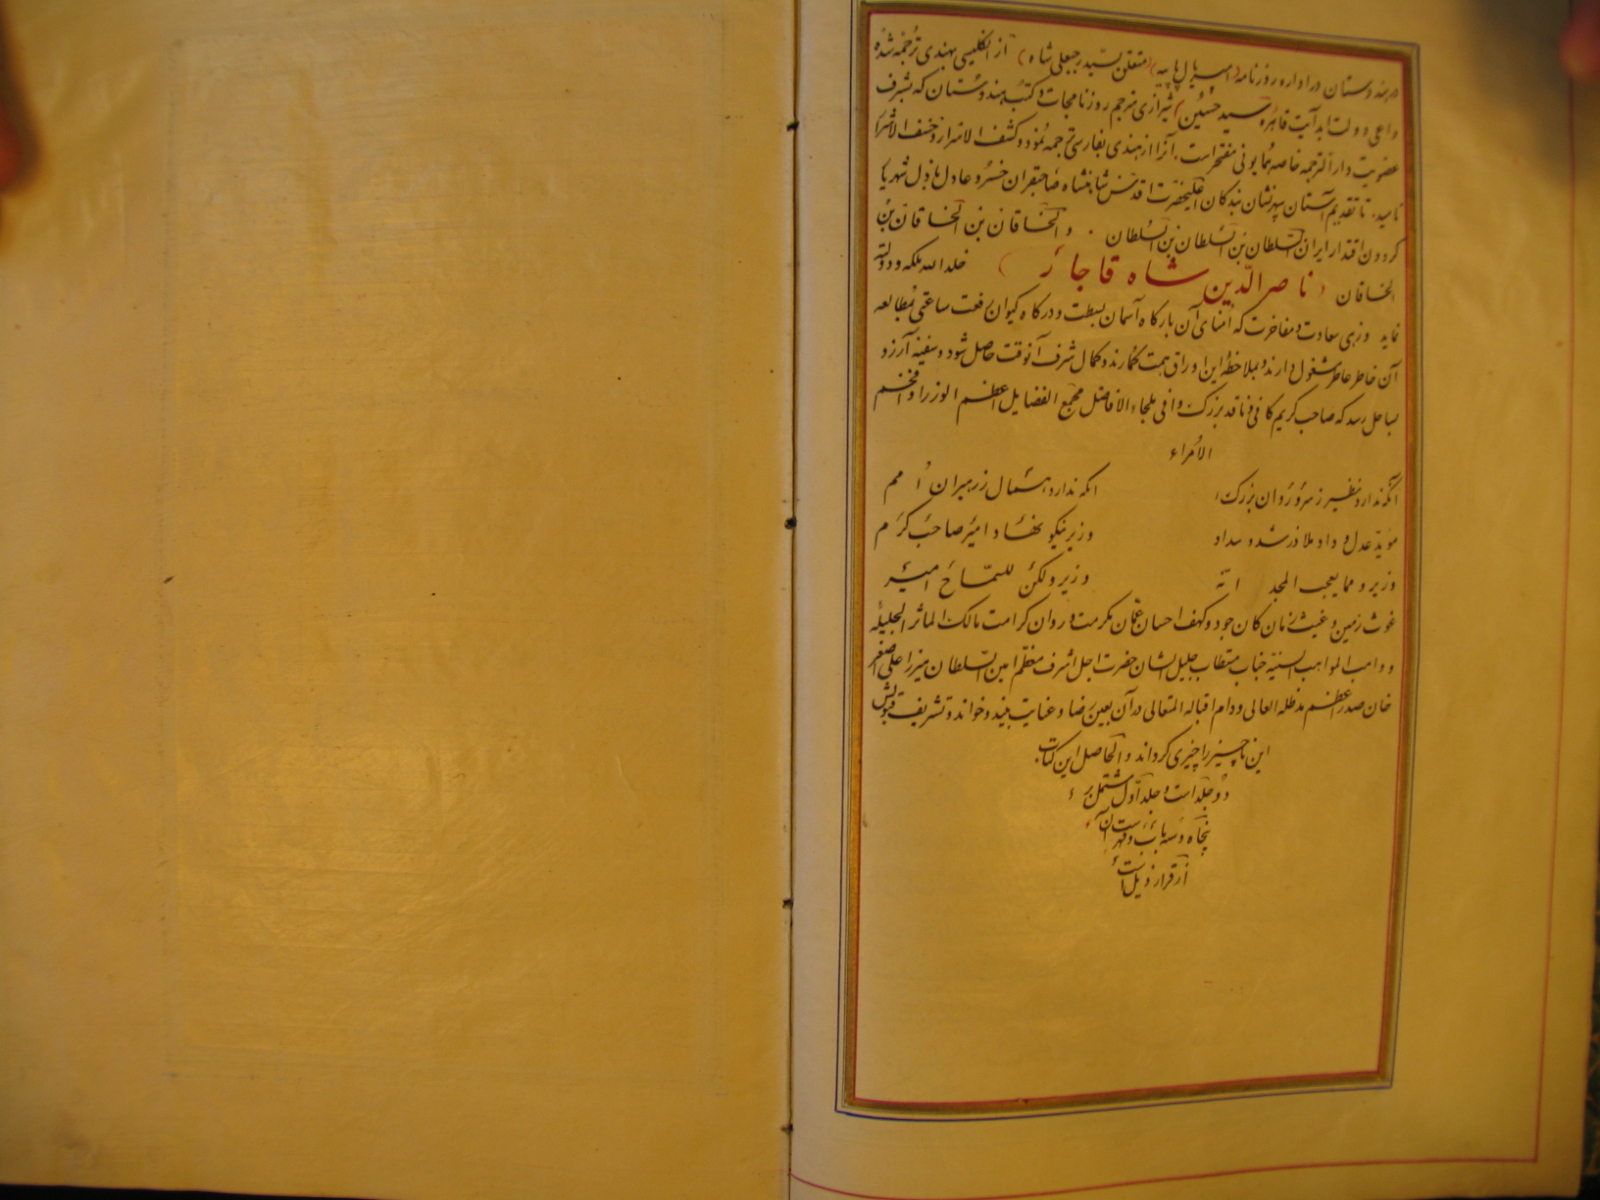 در هندوستان در اداره روزنامه (امپریال پیپر) (متعلق بسید رجبعلی شاه) از انگلیسی بهندی ترجمه شده
داعی دولت ابد آیت قاهره سید حسین شیرازی مترجم روزنامجات و کتب هندوستان که بشرف
عضویت دار الترجمه خاصه همایونی مفتخر است. آنرا از هندی بفارسی ترجمه نمود و کشف الاسرار و خسف الاشرار
نامید. تا تقدیم آستان سپهر نشان بندگان اعلیحضرت اقدس شاهنشاه صاحبقران خسرو عادل باذل شهریار
گردون اقتدار ایران السلطان بن السلطان بن السلطان . و الخاقان بن الخاقان بن
الخاقان (ناصر الدین شاه قاجار) خلد الله ملکه و دولته
نماید و زهی سعادت و مفاخرت که امنای آن بارگاه آسمان بسطت و درگاه کیوان رفعت ساعتی بمطالعه
آن خاطر عاطر مشغول دارند و بملاحظه این اوراق همت گمارند و کمال شرف آنوقت حاصل شود و سفینه آرزو
بساحل رسد که صاحب کریم کافی و ناقد بزرگ وافی ملجاء الافاضل مجمع الفضایل اعظم الوزراء و افخم
الامراء
آنکه ندارد نظیر ز سروران بزرگ آنکه ندارد همال ز رهبران امم
موید عدل و داد ملاذ رشد و سداد وزیر نیکو نهاد امیر صاحب کرم
وزیر و مما یعجب المجد انه وزیر ولکن للسماح امیر
غوث زمین و غیث زمان کان جود و کهف احسان عمان مکرمت و روان کرامت مالک الماثر الجلیله
و واهب المواهب السنیه جناب مستطاب جلیل الشان حضرت اجل اشرف معظم امین السلطان میرزا علی اصغر
خان صدر اعظم مد ظله العالی و دام اقباله المتعالی در آن بعین رضا و عنایت بیند و خواند و تشریف قبولش
این ناچیز را چیزی گرداند و الحاصل این کتاب
دو جلد است و جلد اول مشتمل بر
پنجاه و سه باب و فهرست آن
از قرار ذیل است